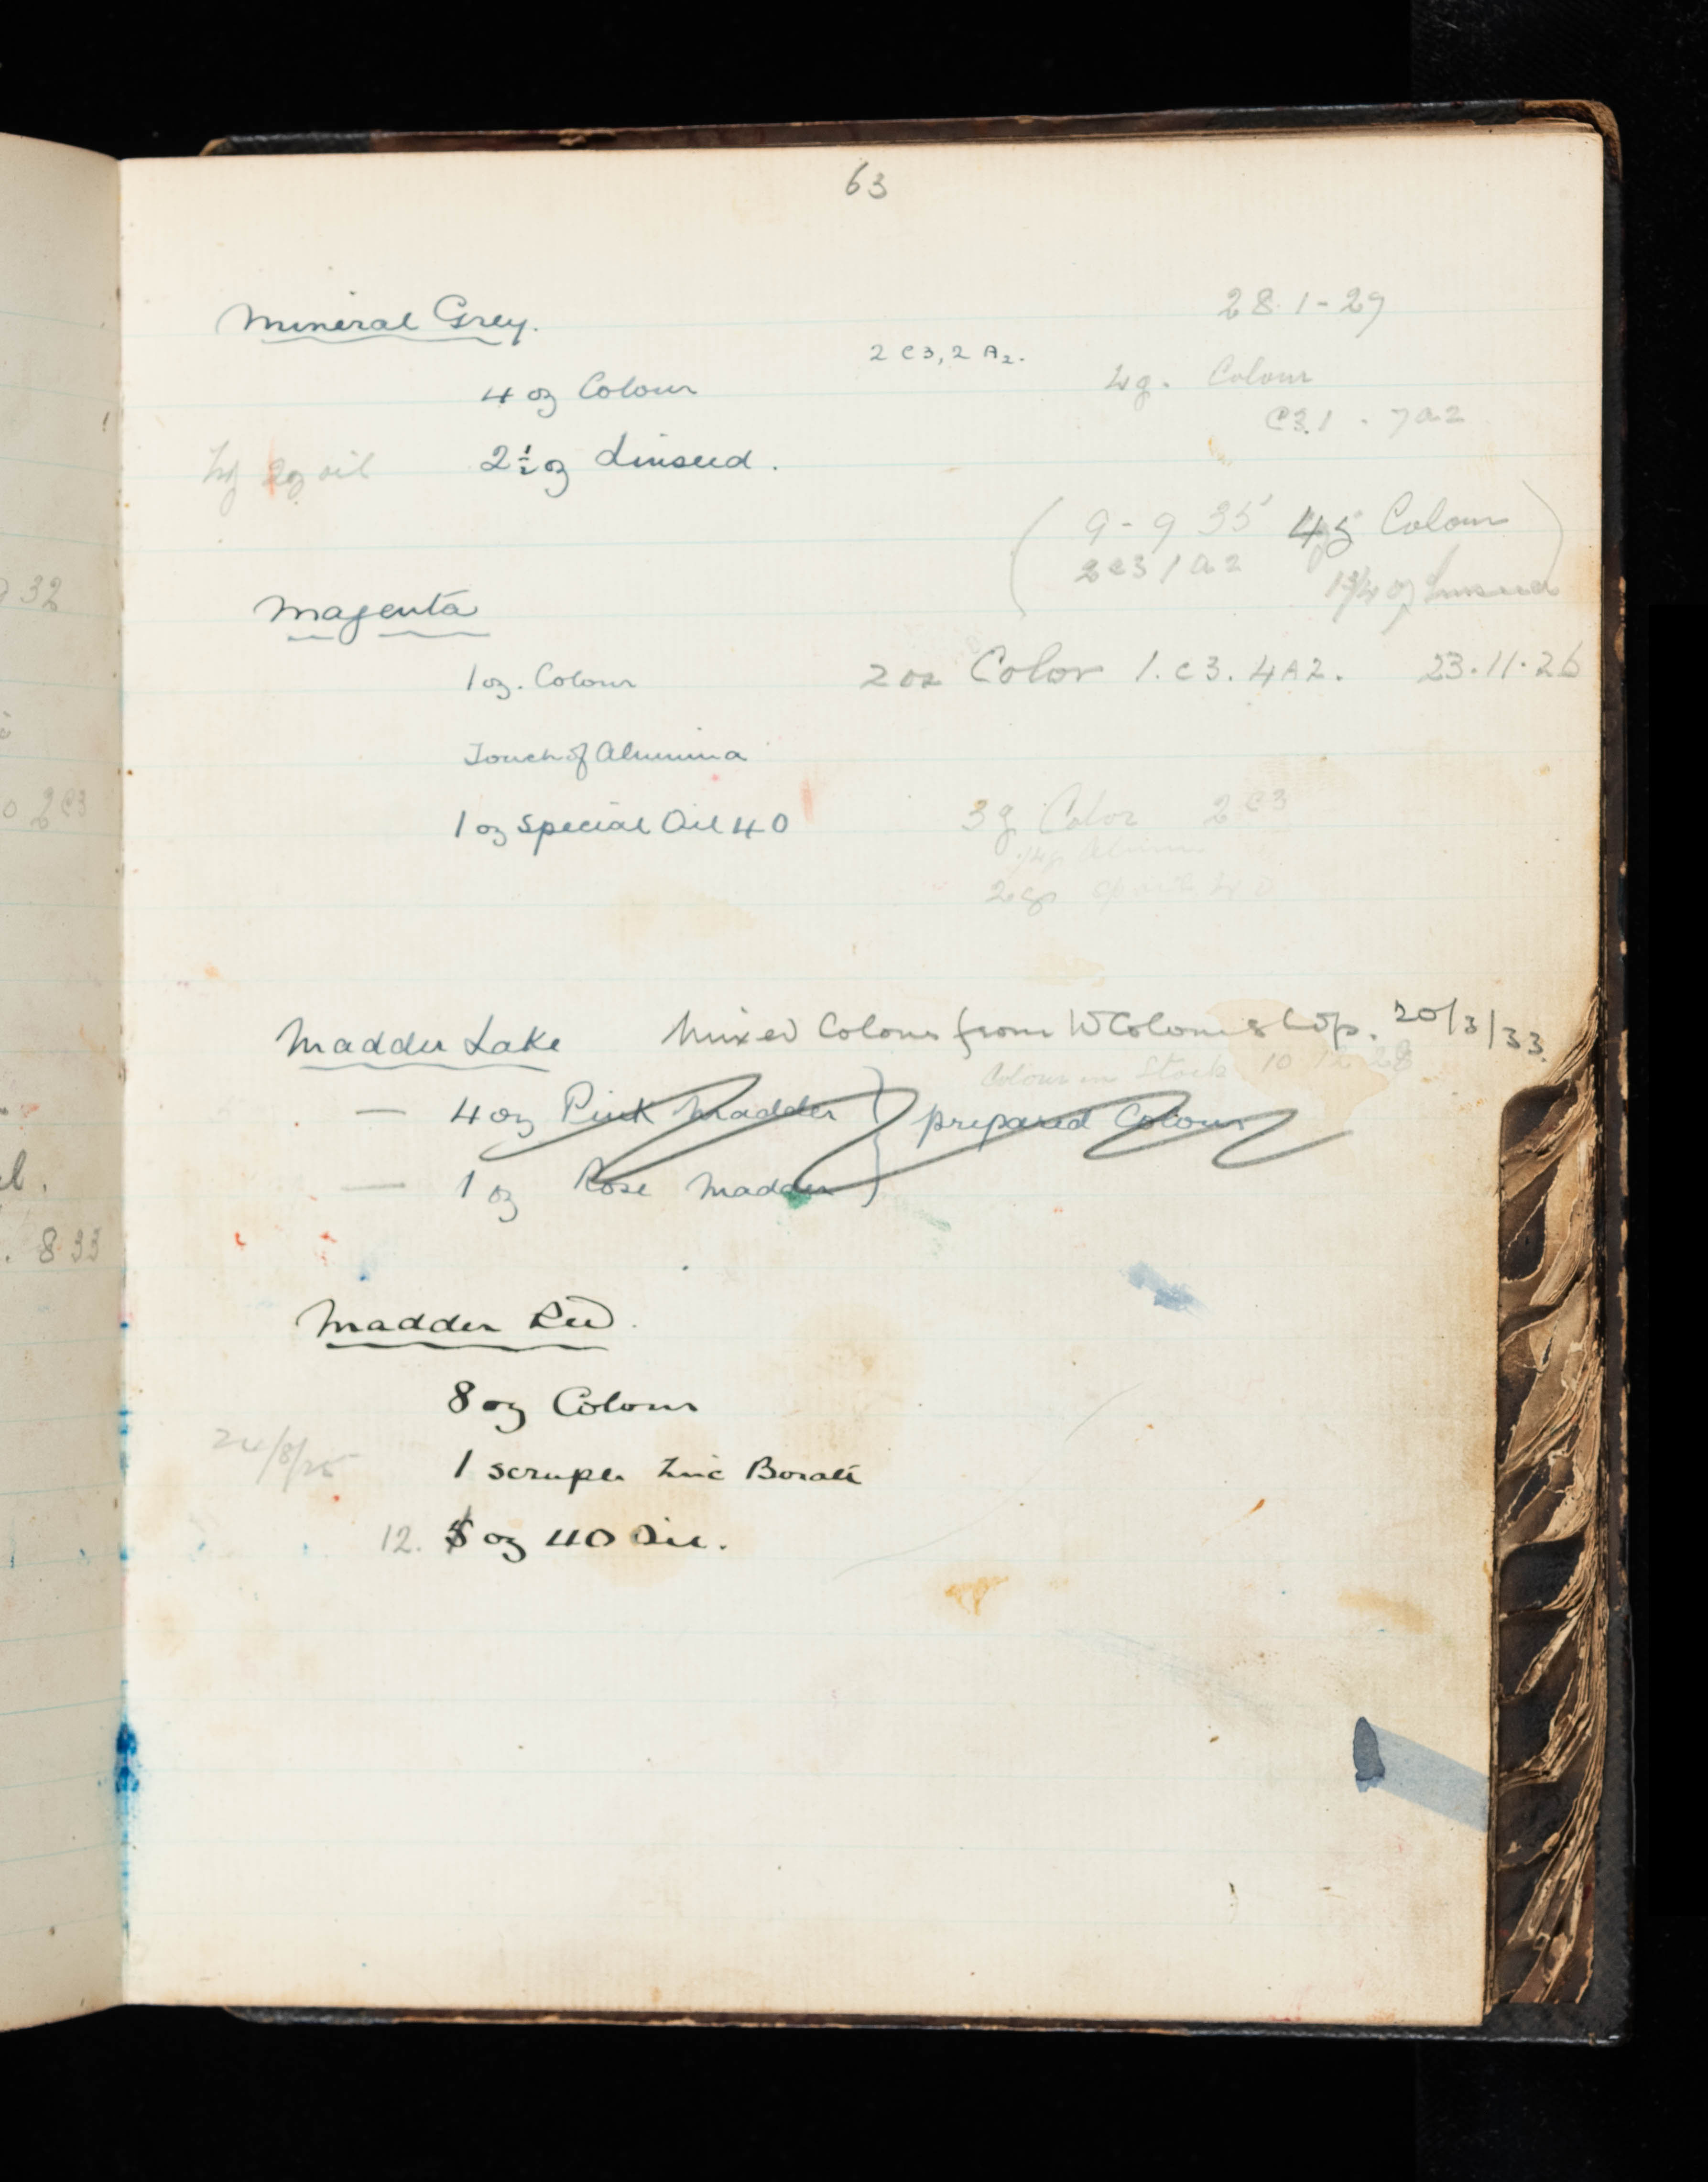 63
Mineral Grey.
28.1-29
2 C3, 2 A2.
4 oz Colour
Colour
C3.1 . 7 A2
2½ oz Linseed.
2 oz oil
( 9-9 35 4 oz Colour
2 C3 1 A2 1 3/4 oz Linseed )
Magenta
1 oz. Colour
2 oz Color 1.C3. 4A2. 23.11.26
Touch of Alumina
1 oz Special Oil 40
3 oz Color 2 C3
Madder Lake Mixed Colour from W Colour Shop. 20/3/33.
Colour in Stock 10 12 28
— 4 oz Pink Madder } prepared Colour
— 1 oz Rose Madder }
Madder Red.
8 oz Colour
24/8/25
1 scruple Zinc Borate
12. 5 oz 40 Oil.
32
2 C3
8 33